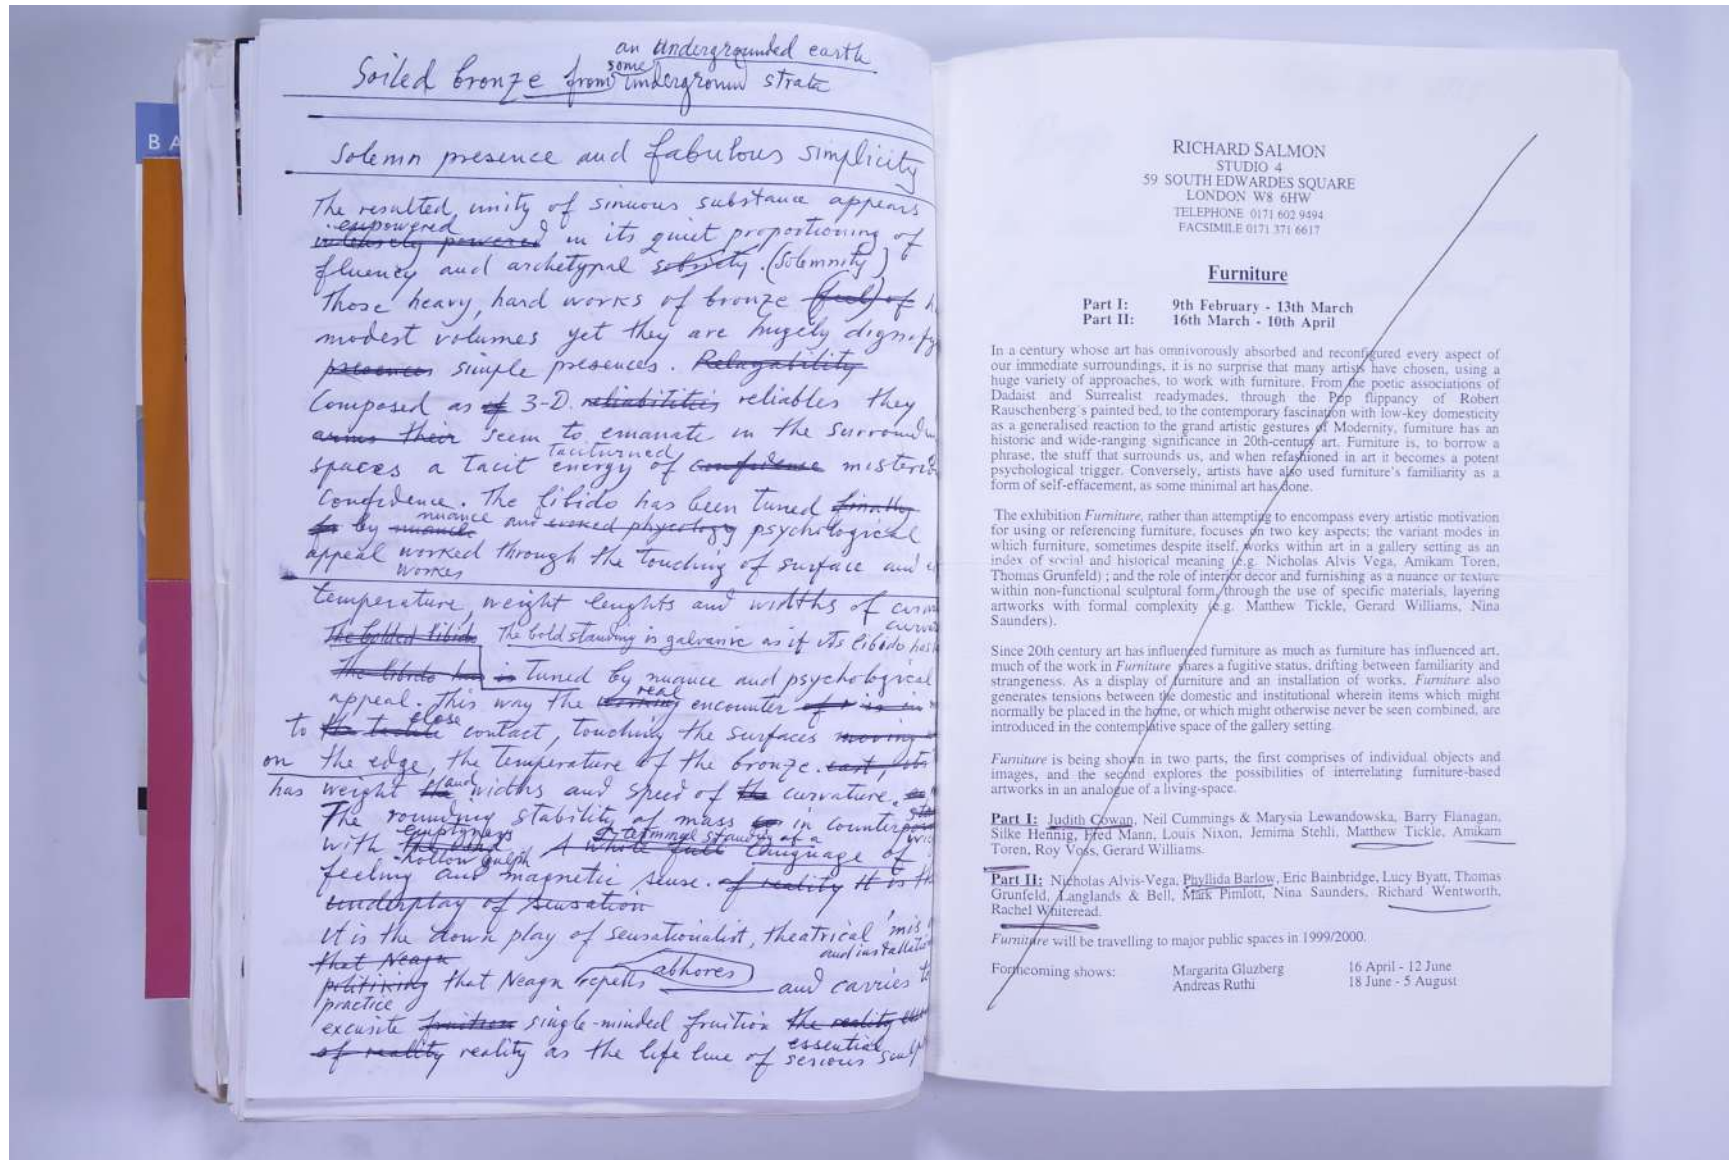 an undergrounded earth
Soiled bronze from some underground strata
Solemn presence and fabulous simplicity
The resulted unity of sinuous substance appears
empowered
intensely powered in its quiet proportioning of
fluency and archetypal sobriety. (Solemnity)
Those heavy, hard works of bronze (feel) of
modest volumes yet they are hugely dignify
presences simple presences. Relayability
Composed as of 3-D. reliabilities reliables they
arms their seem to emanate in the surroundin
taciturned
spaces a tacit energy of confidence misterio
Confidence. The libido has been tuned finally
nuance
by nuance and worked phycology psychological
appeal worked through the touching of surface and
workes
temperature, weight lenghts and widths of
The bolded libido The bold standing is galvanic as if its libido has
The libido has is tuned by nuance and psychological
real
appeal. This way the working encounter of is in
close
to the tactile contact, touching the surfaces moving
on the edge, the temperature of the bronze. cast, its
has weight the and widths and speed of the curvature.
The rounding stability of mass in counter
emptyness
terminal standing of a
with the A whole full language of
hollow gulph
feeling and magnetic sense. of reality It is th
underplay of sensation
It is the down play of sensationalist, theatrical 'mis
that Neagu
and installatio
politiking that Neagu repells abhores and carries to
practice
excusite fruition single-minded fruition the reality
essential
of reality reality as the life line of serious sculp
B A
RICHARD SALMON
STUDIO 4
59 SOUTH EDWARDES SQUARE
LONDON W8 6HW
TELEPHONE 0171 602 9494
FACSIMILE 0171 371 6617
Furniture
Part I: 9th February - 13th March
Part II: 16th March - 10th April
In a century whose art has omnivorously absorbed and reconfigured every aspect of
our immediate surroundings, it is no surprise that many artists have chosen, using a
huge variety of approaches, to work with furniture. From the poetic associations of
Dadaist and Surrealist readymades, through the Pop flippancy of Robert
Rauschenberg's painted bed, to the contemporary fascination with low-key domesticity
as a generalised reaction to the grand artistic gestures of Modernity, furniture has an
historic and wide-ranging significance in 20th-century art. Furniture is, to borrow a
phrase, the stuff that surrounds us, and when refashioned in art it becomes a potent
psychological trigger. Conversely, artists have also used furniture's familiarity as a
form of self-effacement, as some minimal art has done.
The exhibition Furniture, rather than attempting to encompass every artistic motivation
for using or referencing furniture, focuses on two key aspects; the variant modes in
which furniture, sometimes despite itself, works within art in a gallery setting as an
index of social and historical meaning (e.g. Nicholas Alvis Vega, Amikam Toren,
Thomas Grunfeld) ; and the role of interior decor and furnishing as a nuance or texture
within non-functional sculptural form, through the use of specific materials, layering
artworks with formal complexity (e.g. Matthew Tickle, Gerard Williams, Nina
Saunders).
Since 20th century art has influenced furniture as much as furniture has influenced art,
much of the work in Furniture shares a fugitive status, drifting between familiarity and
strangeness. As a display of furniture and an installation of works, Furniture also
generates tensions between the domestic and institutional wherein items which might
normally be placed in the home, or which might otherwise never be seen combined, are
introduced in the contemplative space of the gallery setting.
Furniture is being shown in two parts, the first comprises of individual objects and
images, and the second explores the possibilities of interrelating furniture-based
artworks in an analogue of a living-space.
Part I: Judith Cowan, Neil Cummings & Marysia Lewandowska, Barry Flanagan,
Silke Hennig, Fred Mann, Louis Nixon, Jemima Stehli, Matthew Tickle, Amikam
Toren, Roy Voss, Gerard Williams.
Part II: Nicholas Alvis-Vega, Phyllida Barlow, Eric Bainbridge, Lucy Byatt, Thomas
Grunfeld, Langlands & Bell, Mark Pimlott, Nina Saunders, Richard Wentworth,
Rachel Whiteread.
Furniture will be travelling to major public spaces in 1999/2000.
Forthcoming shows: Margarita Gluzberg 16 April - 12 June
Andreas Ruthi 18 June - 5 August